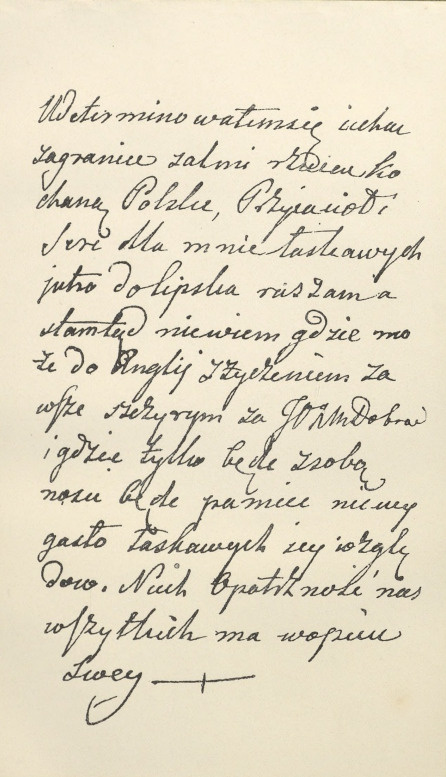 Udeterminowałemsię iechać
zagranice zalmi rzucić ko
chaną Polske, Przyiaciół i
Serc dla mnie łaskawych
jutro do lipska ruszam a
stamtąd niewiem gdzie mo
że do Anglij z życzeniem za
wsze szczyrym za Dobrod
i gdzie tylko będe zsobą
nosić będe pamięc niewy
gasło łaskawych iey wzglę
dow. Niech Opatrzność nas
wszytkich ma wopiece
swey